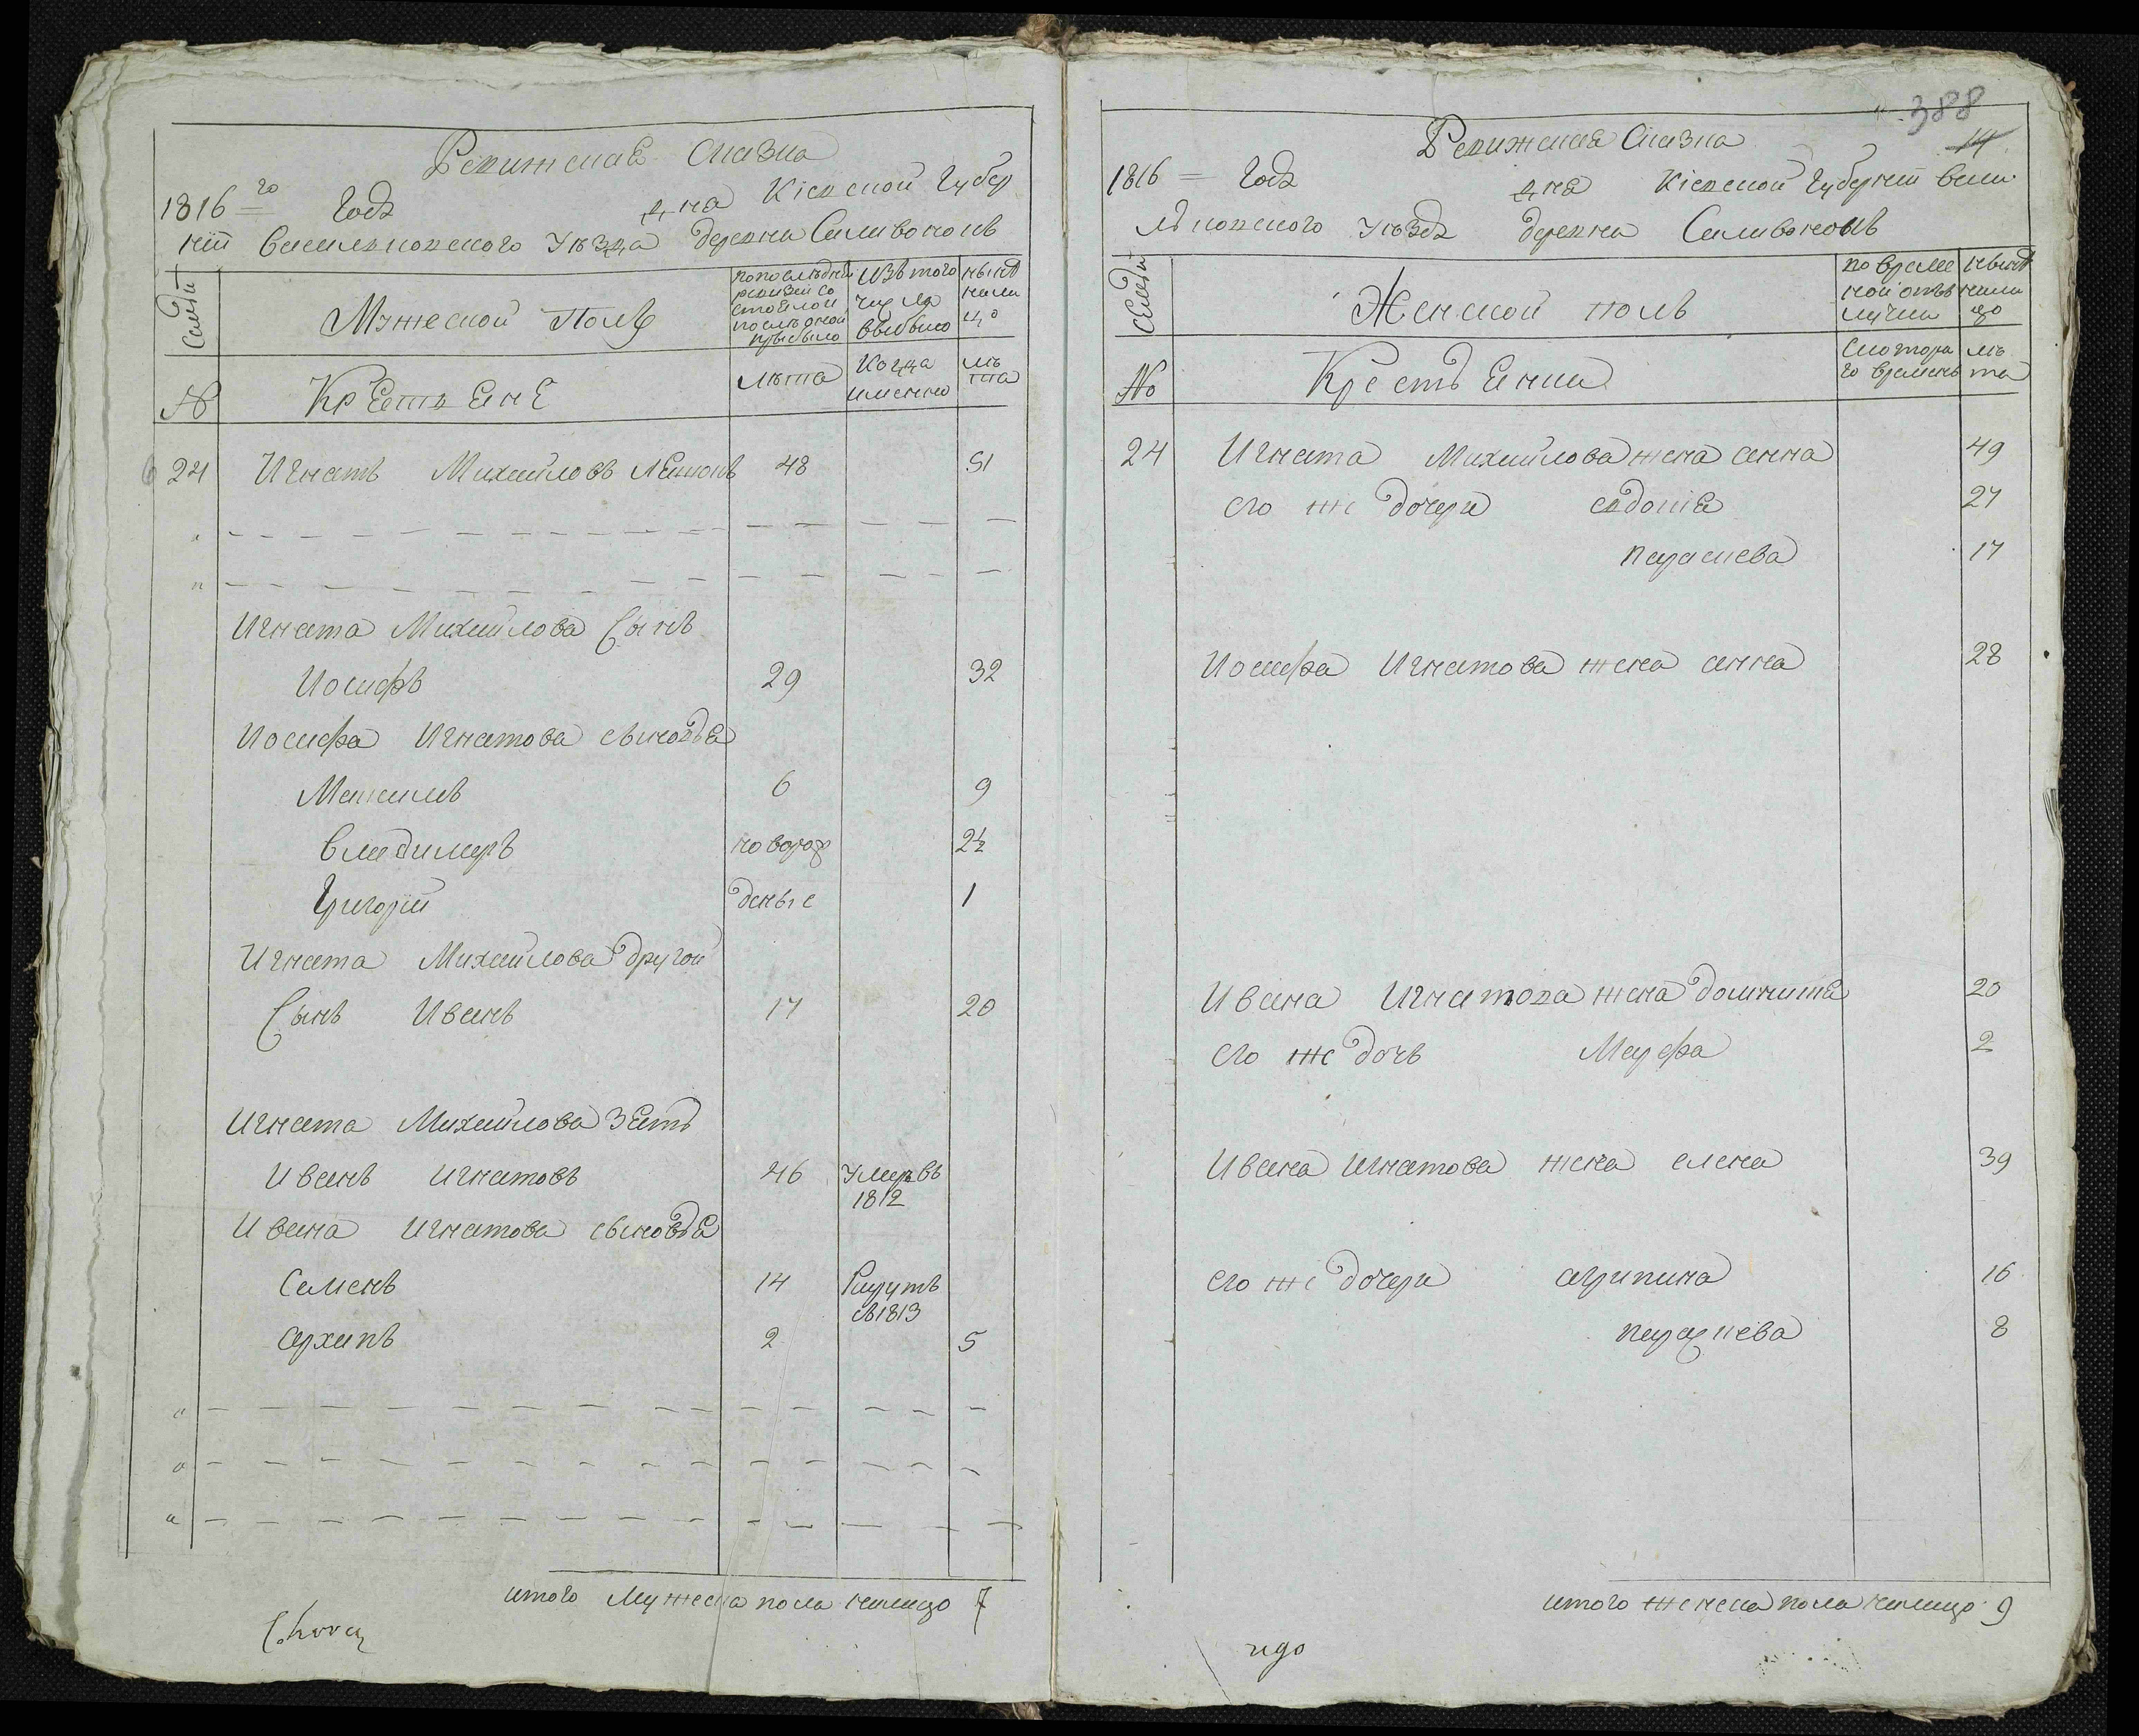 Ревижская Сказка
1816го Года дня Кіевской Губер
ніи Васильковского Уѣзда деревни Саливонокъ
Семьи
Мужеской Полъ
По последней ревизіи состояло и после оной прибыло
Изъ того числа выбыло
нынѣ налицо
№
Крестьяне
лѣта
Когда именно
лѣта
24 Игнатъ Михайловъ 48 51
Игната Михайлова Сынъ
Иосифъ 29 32
Иосифа Игнатова сыновья
Максимъ 6 9
Владимеръ новорож 2½
Григорій деные 1
Игната Михайлова другой
Сынъ Иванъ 17 20
Игната Михайлова Зять
Иванъ Игнатовъ 46 Умеръ въ
1812
Ивана Игнатова сыновья
Семенъ 14 Рекрутъ
въ 1813
Архипъ 2 5
итого мужеска пола налицо 7
388
14
Ревижская Сказка
1816 Года дня Кіевской Губерніи Васи
льковского Уѣзда деревни Саливонокъ
Семьи
Женской полъ
Во временной отлучки
нынѣ налицо
№
Крестьянки
Скоторого времени
лѣта
24 Игната Михайлова жена анна 49
его же дочери евдокія 27
параскева 17
Иосифа Игнатова жена анна 28
Ивана Игнатова жена домникія 20
его же дочь Марфа 2
Ивана Игнатова жена елена 39
его же дочери агрипина 16
параскева 8
итого женска пола налицо 9